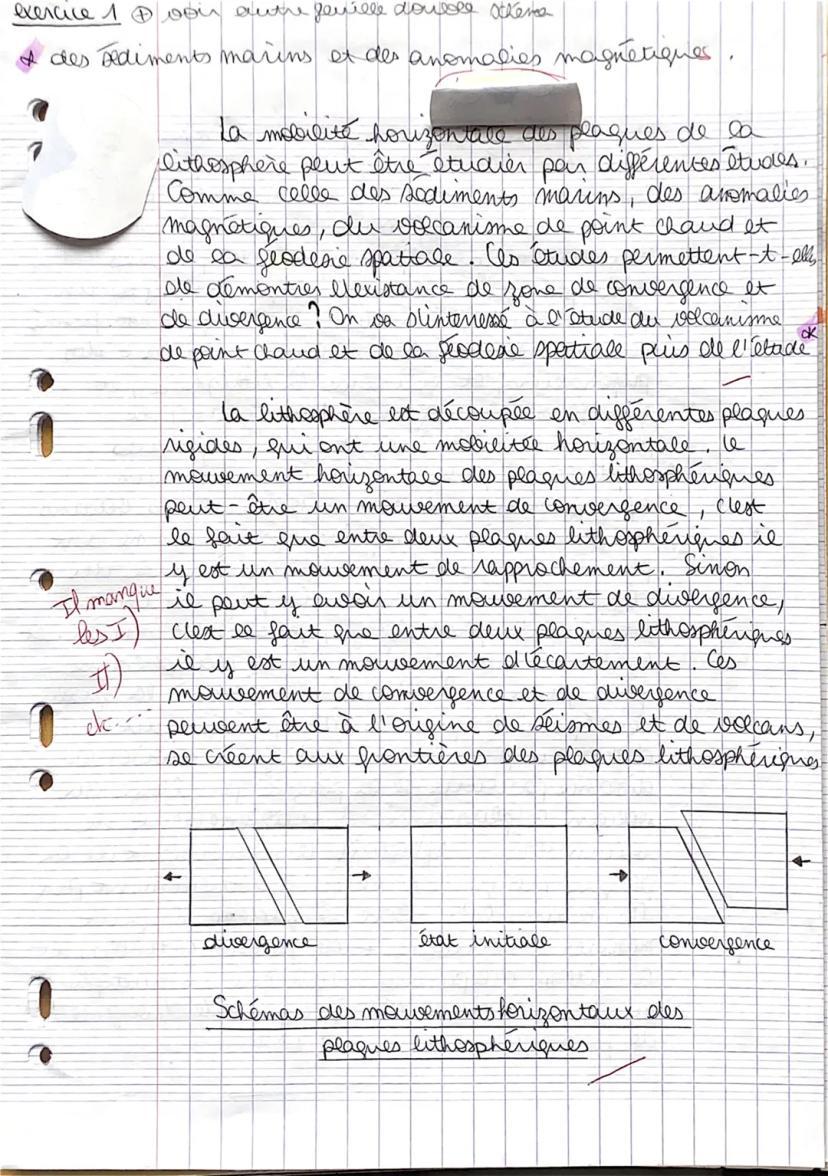 exercice 1 ⊕ voir autre feuille double
* des sédiments marins et des anomalies magnétiques.
La mobilité horizontale des plaques de la
lithosphère peut être étudier par différentes études.
Comme celle des sédiments marins, des anomalies
magnétiques, du volcanisme de point chaud et
de la géodesie spatiale. Ces études permettent-t-elles
de démontres l'existance de zone de convergence et
de divergence? On va s'interressé à l'étude du volcanisme
de point chaud et de la géodesie spatiale puis de l'étude *
La lithosphère est découpée en différentes plaques
rigides, qui ont une mobilitée horizontale. Le
mouvement horizontale des plaques lithosphériques
peut-être un mouvement de convergence, c'est
le fait que entre deux plaques lithosphériques il
y est un mouvement de rapprochement. Sinon
il peut y avoir un mouvement de divergence,
c'est le fait que entre deux plaques lithosphériques
il y est un mouvement d'écartement. Ces
mouvement de convergence et de divergence
peuvent être à l'origine de séismes et de volcans,
se créent aux frontières des plaques lithosphériques
Il manque
les I)
II)
etc....
divergence
état initiale
convergence
Schémas des mouvements horizontaux des
plaques lithosphériques